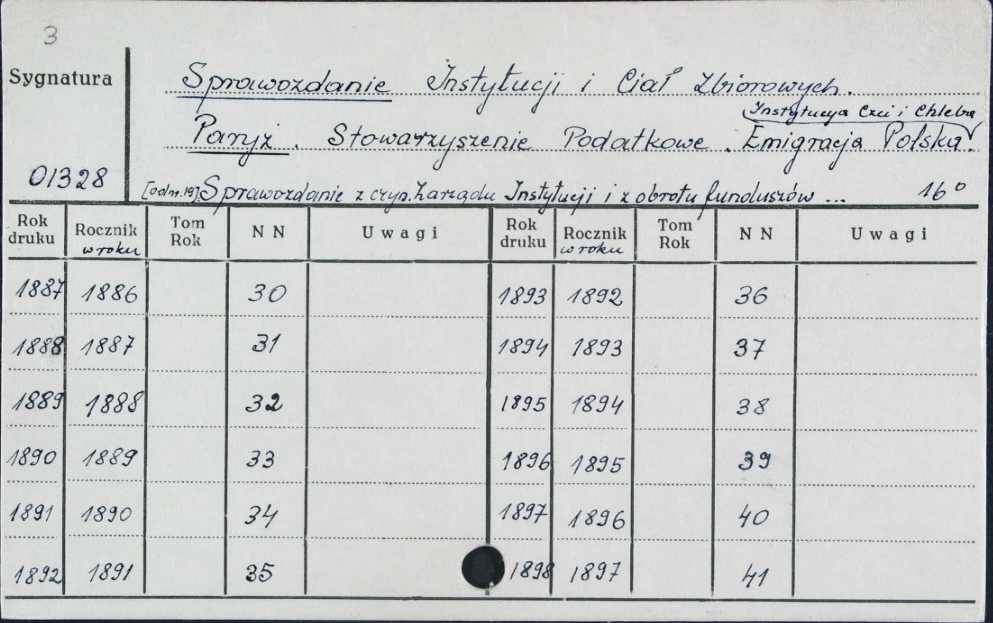 3
Sygnatura
Sprawozdanie Instytucji i Ciał Zbiorowych.
Instytucja Czci i Chleba
Paryż. Stowarzyszenie Podatkowe. Emigracja Polska.
01328
[odm.19] Sprawozdanie z czyn. Zarządu Instytucji i z obrotu funduszów ... 16°
Rok druku Rocznik w roku Tom Rok NN Uwagi Rok druku Rocznik w roku Tom Rok NN Uwagi
1887 1886 30 1893 1892 36
1888 1887 31 1894 1893 37
1889 1888 32 1895 1894 38
1890 1889 33 1896 1895 39
1891 1890 34 1897 1896 40
1892 1891 35 1898 1897 41